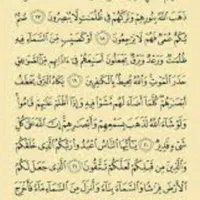 ذَهَبَ ٱللَّهُ بِنُورِهِمْ وَتَرَكَهُمْ فِى ظُلُمَٰتٍ لَّا يُبْصِرُونَ ١٧ صُمٌّۢ
بُكْمٌ عُمْىٌ فَهُمْ لَا يَرْجِعُونَ ١٨ أَوْ كَصَيِّبٍ مِّنَ ٱلسَّمَآءِ فِيهِ
ظُلُمَٰتٌ وَرَعْدٌ وَبَرْقٌ يَجْعَلُونَ أَصَٰبِعَهُمْ فِىٓ ءَاذَانِهِم مِّنَ ٱلصَّوَٰعِقِ
حَذَرَ ٱلْمَوْتِ وَٱللَّهُ مُحِيطٌۢ بِٱلْكَٰفِرِينَ ١٩ يَكَادُ ٱلْبَرْقُ يَخْطَفُ
أَبْصَٰرَهُمْ كُلَّمَآ أَضَآءَ لَهُم مَّشَوْا۟ فِيهِ وَإِذَآ أَظْلَمَ عَلَيْهِمْ قَامُوا۟
وَلَوْ شَآءَ ٱللَّهُ لَذَهَبَ بِسَمْعِهِمْ وَأَبْصَٰرِهِمْ إِنَّ ٱللَّهَ عَلَىٰ كُلِّ
شَىْءٍ قَدِيرٌ ٢٠ يَٰٓأَيُّهَا ٱلنَّاسُ ٱعْبُدُوا۟ رَبَّكُمُ ٱلَّذِى خَلَقَكُمْ
وَٱلَّذِينَ مِن قَبْلِكُمْ لَعَلَّكُمْ تَتَّقُونَ ٢١ ٱلَّذِى جَعَلَ لَكُمُ
ٱلْأَرْضَ فِرَٰشًا وَٱلسَّمَآءَ بِنَآءً وَأَنزَلَ مِنَ ٱلسَّمَآءِ مَآءً فَأَخْرَجَ